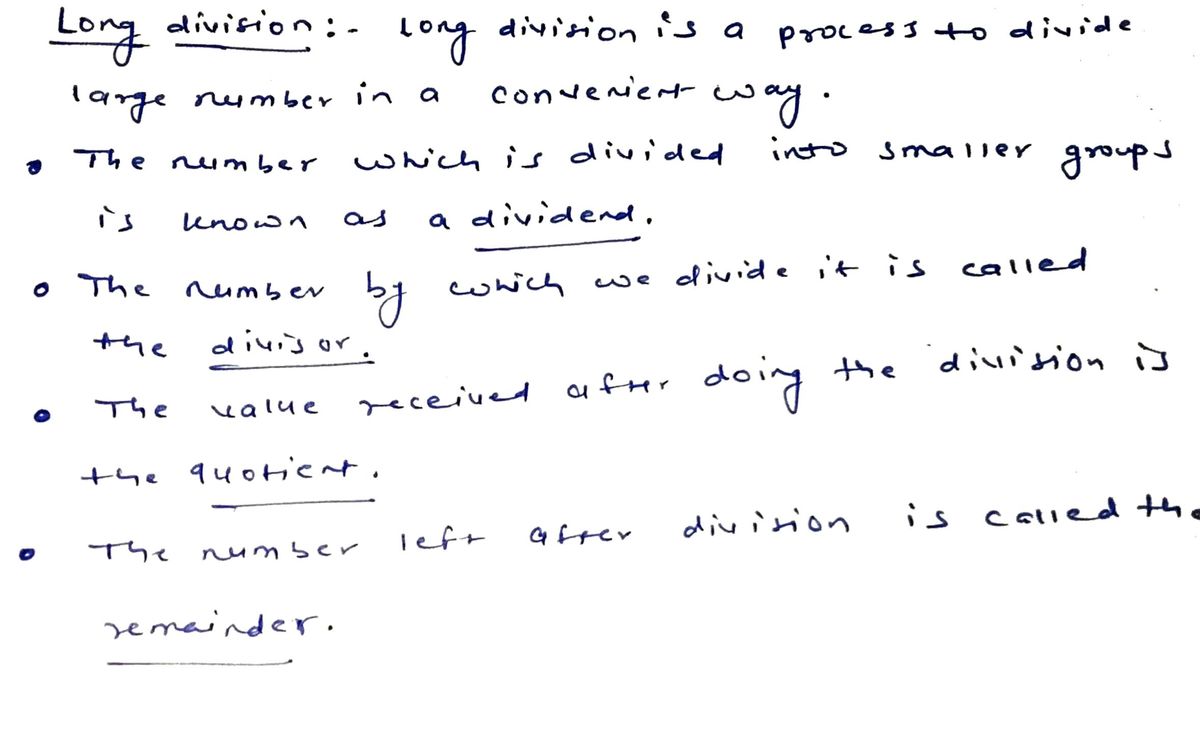 Long division :- Long division is a process to divide
large number in a convenient way.
• The number which is divided into smaller groups
is known as a dividend.
• The number by which we divide it is called
the divisor.
• The value received after doing the division is
the quotient.
• The number left after division is called the
remainder.